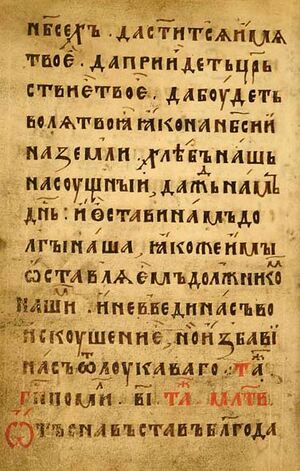 нб҃сехъ · да ст҃итсѧ имѧ
твоѥ · да прийдеть цр҃ь
ствиѥ твоѥ · да боудеть
волѧ твоꙗ ꙗко на нб҃си и
на земли · хлѣбъ нашь
насоущныи · дажⷣь намъ
дн҃ь : и ѡстави намъ до
лгы наша · ꙗкоже и мы
ѡставлѧѥмъ должнико
нашимⷨ · и не въведи насъ во
искоушение · но избави
насъ ѿ лоукаваго ·
ѿ тъсна въставъ благода